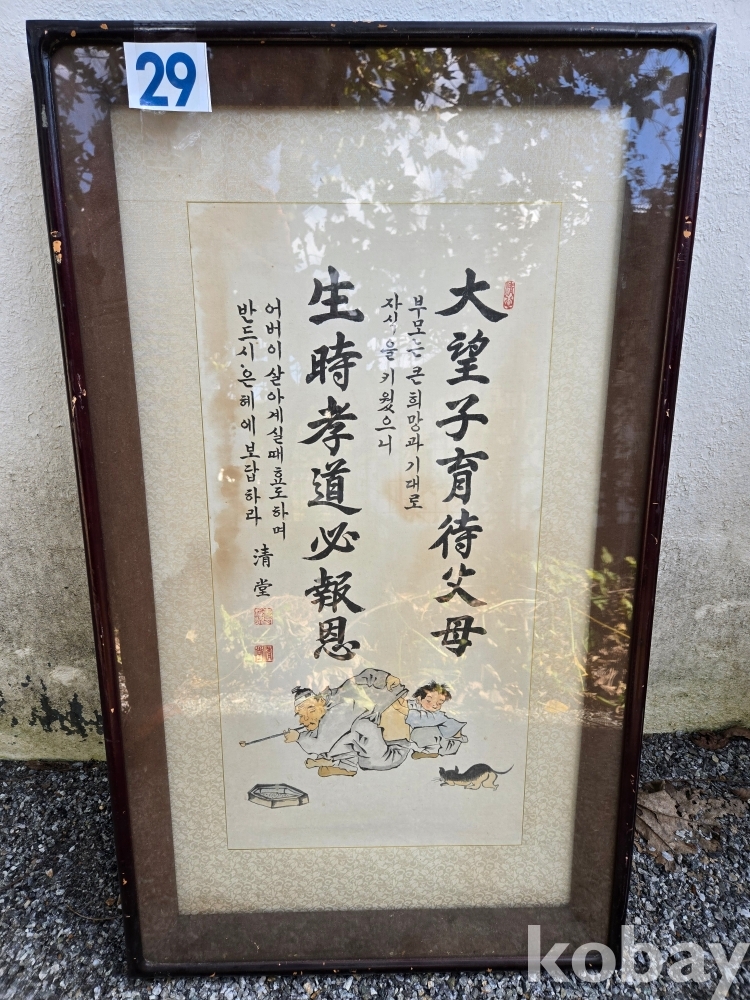 29
大望子育待父母
부모는 큰 희망과 기대로
자식을 키웠으니
生時孝道必報恩
어버이 살아계실때 효도하며
반드시 은혜에 보답하라
清堂
kobay